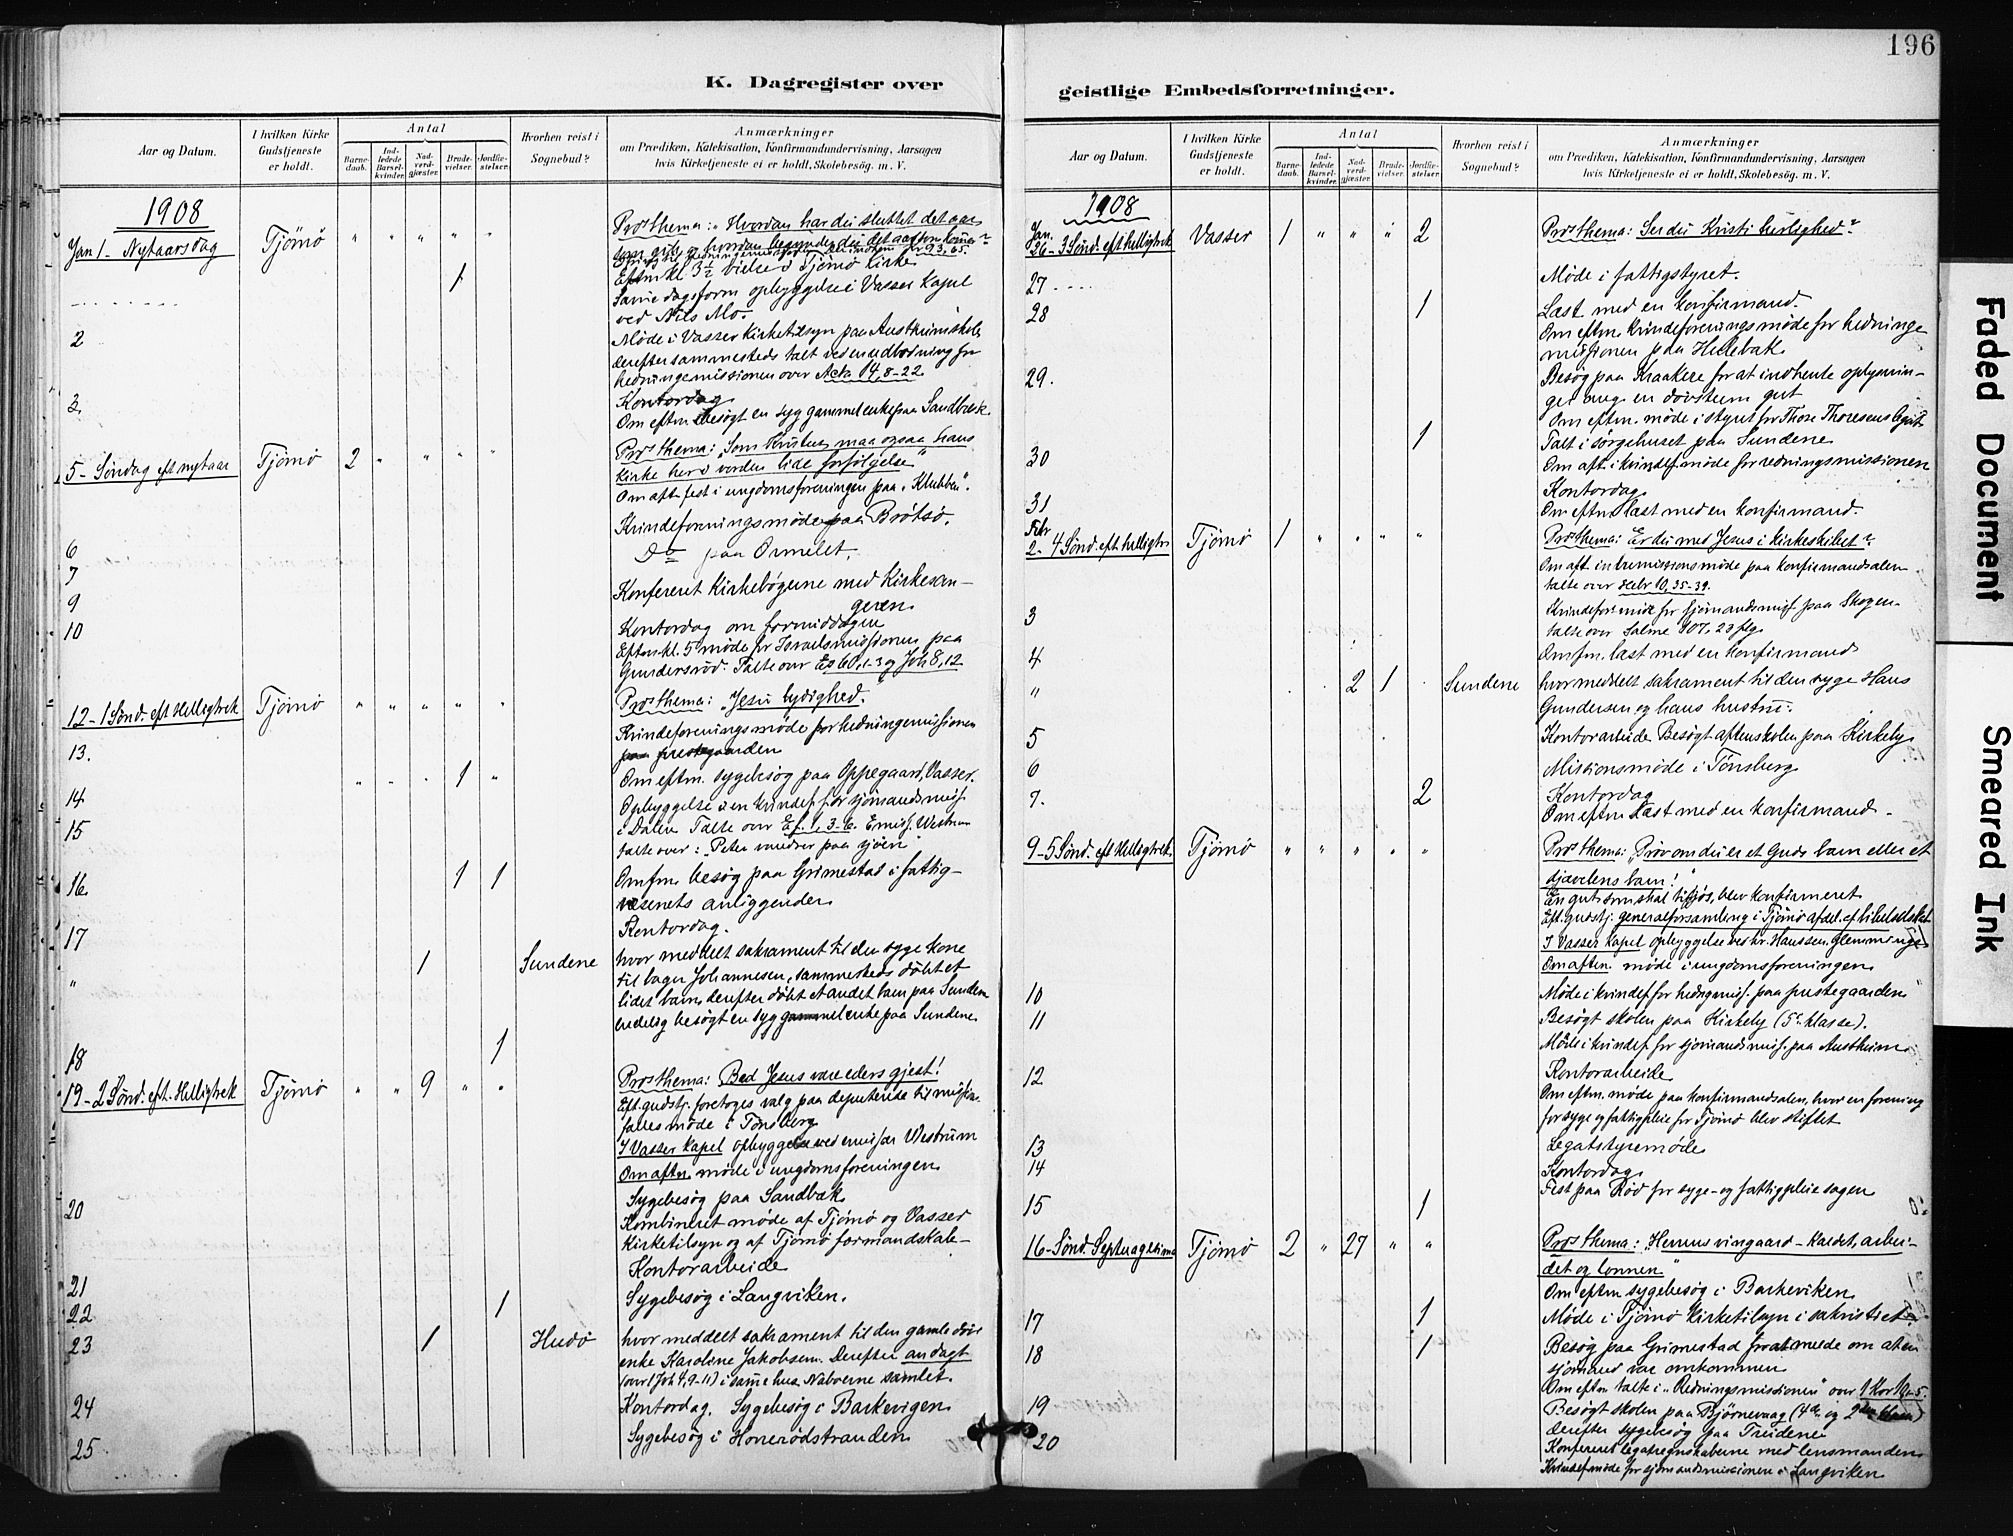 196
K. Dagregister over
geistlige Embedsforretninger.
Aar og Datum.
I hvilken Kirke Gudstjeneste er holdt.
Antal
Barne-daab.
Ind-ledede Barsel-kvinder.
Nad-verd-gjæster.
Brude-vielser.
Jordfæ-stelser.
Hvorhen reist i Sognebud?
Anmærkninger
om Prædiken, Katekisation, Konfirmandundervisning, Aarsagen
hvis Kirketjeneste ei er holdt, Skolebesög. m. V.
1908
Jan 1 - Nytaarsdag Tjömö " " " " " Pros thema: "Hvordan har du sluttet det aar
som gik, og hvordan begynder du det aar som kommer?"
Eftm kl 3½ vielse i Tjömö Kirke 1
Samme dags form opbyggelse i Vasser Kapel
ved Nils Mo.
2 Möde i Vasser Kirketilsyn paa Austheim skole
derefter sammesteds talt ved en udlodning for
hedningemissionen over Acta 14, 8-22
3 Kontordag
Om eftm besögt en syg gammel enke paa Sandbæk.
5 - Söndag eft nytaar Tjömö 2 " " " " Pros thema: "Som Kristus maa ogsaa hans
kirke her i verden lide forfölgelse"
Om aft. fest i ungdomsforeningen paa "Klubben".
6 Kvindeforeningsmöde paa Brötsö.
7 Do paa Ormelet.
9 Konfereret Kirkebögerne med Kirkesan-
geren
10 Kontordag om formiddagen
Eftm kl. 5 möde for Israelsmissionen paa
Gundersröd. Talte over Es 60, 1-3 og Joh 8,12
12 - 1 Sönd. eft Helligtrek Tjömö " " " " " Pros thema: "Jesu lydighed."
13. Kvindeforeningsmöde for hedningemissionen
paa prestegaarden
14 " " " 1 " Om eftm. sygebesög paa Oppegaard, Vasser.
15 Opbyggelse i en kvindef. for sjömandsmiss.
i Dalen Talte over Ef. 1, 3-6. Emiss. Westrum
talte over: "Peter vandrer paa sjöen
16 1 1 Om fm. besög paa Grimestad i fattig-
væsenets anliggender
17 Kontordag.
" 1 Sundene hvor meddelt sakrament til den syge kone
til bager Johannesen, sammesteds döbt et
lidet barn, derefter döbt et andet barn paa Sundene
endelig besögt en syg gammel enke paa Sundene
18 1
19 - 2 Sönd. eft. Helligtrek Tjömö " " 9 " " Pros thema: Bed Jesus være eders gjest!
Eft. gudstj. foretoges valg paa deputerede til mission-
falles möde i Tönsberg
I Vasser Kapel opbyggelse ved emissær Westrum
Om aften möde i ungdomsforeningen
20 Sygebesög paa Sandbæk
Kombineret möde af Tjömö og Vasser
Kirketilsyn og af Tjömö formandskab-
21 Kontorarbeide
22 1 Sygebesög i Langviken.
23 1 Hudö hvor meddelt sakrament til den gamle döve
enke Karoline Jakobsen. Derefter andagt
(over 1 Joh 4, 9-11) i samme hus. Naboerne samlet.
24 Kontordag. Sygebesög i Barkevigen
25 Sygebesög i Honerödstranden
Aar og Datum.
I hvilken Kirke Gudstjeneste er holdt.
Antal
Barne-daab.
Ind-ledede Barsel-kvinder.
Nad-verd-gjæster.
Brude-vielser.
Jordfæ-stelser.
Hvorhen reist i Sognebud?
Anmærkninger
om Prædiken, Katekisation, Konfirmandundervisning, Aarsagen
hvis Kirketjeneste ei er holdt, Skolebesög. m. V.
1908
Jan. 26 - 3 Sönd. eft helligtrek Vasser 1 " " " 2 Pros thema: Ser du Kristi herlighed?
27 Möde i fattigstyret.
28 1 Læst med en konfirmand.
Om eftm. kvindeforeningsmöde for hedninge
missionen paa Hellebæk
29. Besög paa Kraakere for at indhente oplysnin-
ger ang. en dövstum gut
Om eftm. möde i styret for Thore Thoresens legat
30 1 Talt i sörgehuset paa Sundene
Om aft. i kvindef. möde for redningsmissionen
31 Kontordag
Om eftm læst med en konfirmand.
Febr 2 - 4 Sönd. eft helligtr Tjömö 1 " " " " Pros thema: Er du med Jesus i kirkeskibet?
Om aft indremissionsmöde paa konfirmandsalen
talte over Hebr 10, 35-39.
3 Kvindefor. möde for sjömandsmiss. paa Skogen
talte over Salme 107, 23 flg.
4 Om fm. læst med en konfirmand
" 2 1 Sundene hvor meddelt sakrament til den syge Hans
Gundersen og hans hustru.
5 Kontorarbeide Besögt aftenskolen paa Kirkeby
6 Missionsmöde i Tönsberg
7. 2 Kontordag
Om eftm læst med en konfirmand.
9 - 5 Sönd. eft Helligtrek. Tjömö " " " " " Pros thema: "Pröv om du er et Guds barn eller et
djævelens barn!"
En gut som skal tilsjös, blev konfirmeret
Eft. gudstj. generalforsamling i Tjömö afdel. af bibelselskab
I Vasser Kapel opbyggelse ved hr. Hanssen, Glemminge
Om aften möde i ungdomsforeningen
10 Möde i kvindef. for hedngmiss. paa prestegaarden
11 Besögt skolen paa Kirkeby (5te klasse).
Möde i kvindef. for sjömandsmiss. paa Austheim
12 Kontorarbeide
Om eftm. möde paa konfirmandsalen, hvor en forening
for syge og fattigpleie for Tjömö blev stiftet
13 Legatstyremöde
14 Kontordag
15 1 Fest paa Röd for syge- og fattigpleie sagen
16 - Sönd. Septuagesima Tjömö 2 " 27 " " Pros thema: "Herrens vingaard - kaldet, arbei-
det og lönnen"
Om eftm sygebesög i Barkeviken
17 1 Möde i Tjömö Kirketilsyn i sakristiet
18 1 Besög paa Grimestad for at melde om at en
sjömand var omkommen
Om eftm talte i "Redningsmissionen" over 1 Kor 1-5.
19 Besögt skolen paa Björnevaag (4de og 2den klasse)
derefter sygebesög paa Treidene
20 Konfereret legatregnskaberne med lensmanden
Kvindef. möde for sjömandsmissionen i Langviken
Faded Document
Smeared Ink